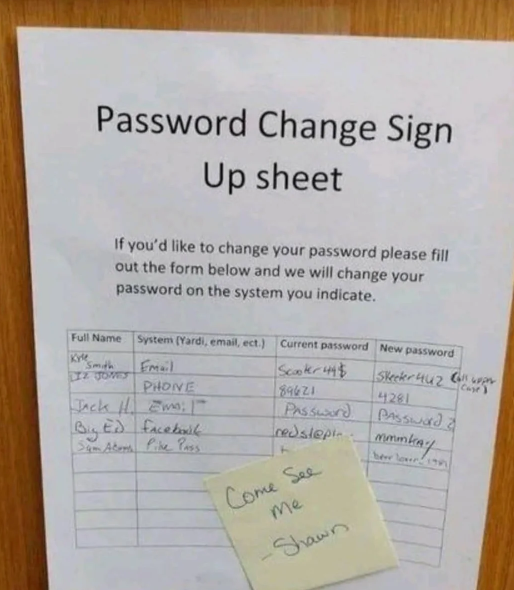 Password Change Sign
Up sheet
If you'd like to change your password please fill
out the form below and we will change your
password on the system you indicate.
Full Name System (Yardi, email, ect.) Current password New password
Kyle Smith Email Scooter44$ Skeeter442 (all upper case)
Liz Jones PHONE 89621 4281
Jack H. Email Password Password2
Big Ed facebook
Sam Adams Pike Pass
Come See
Me
-Shawn